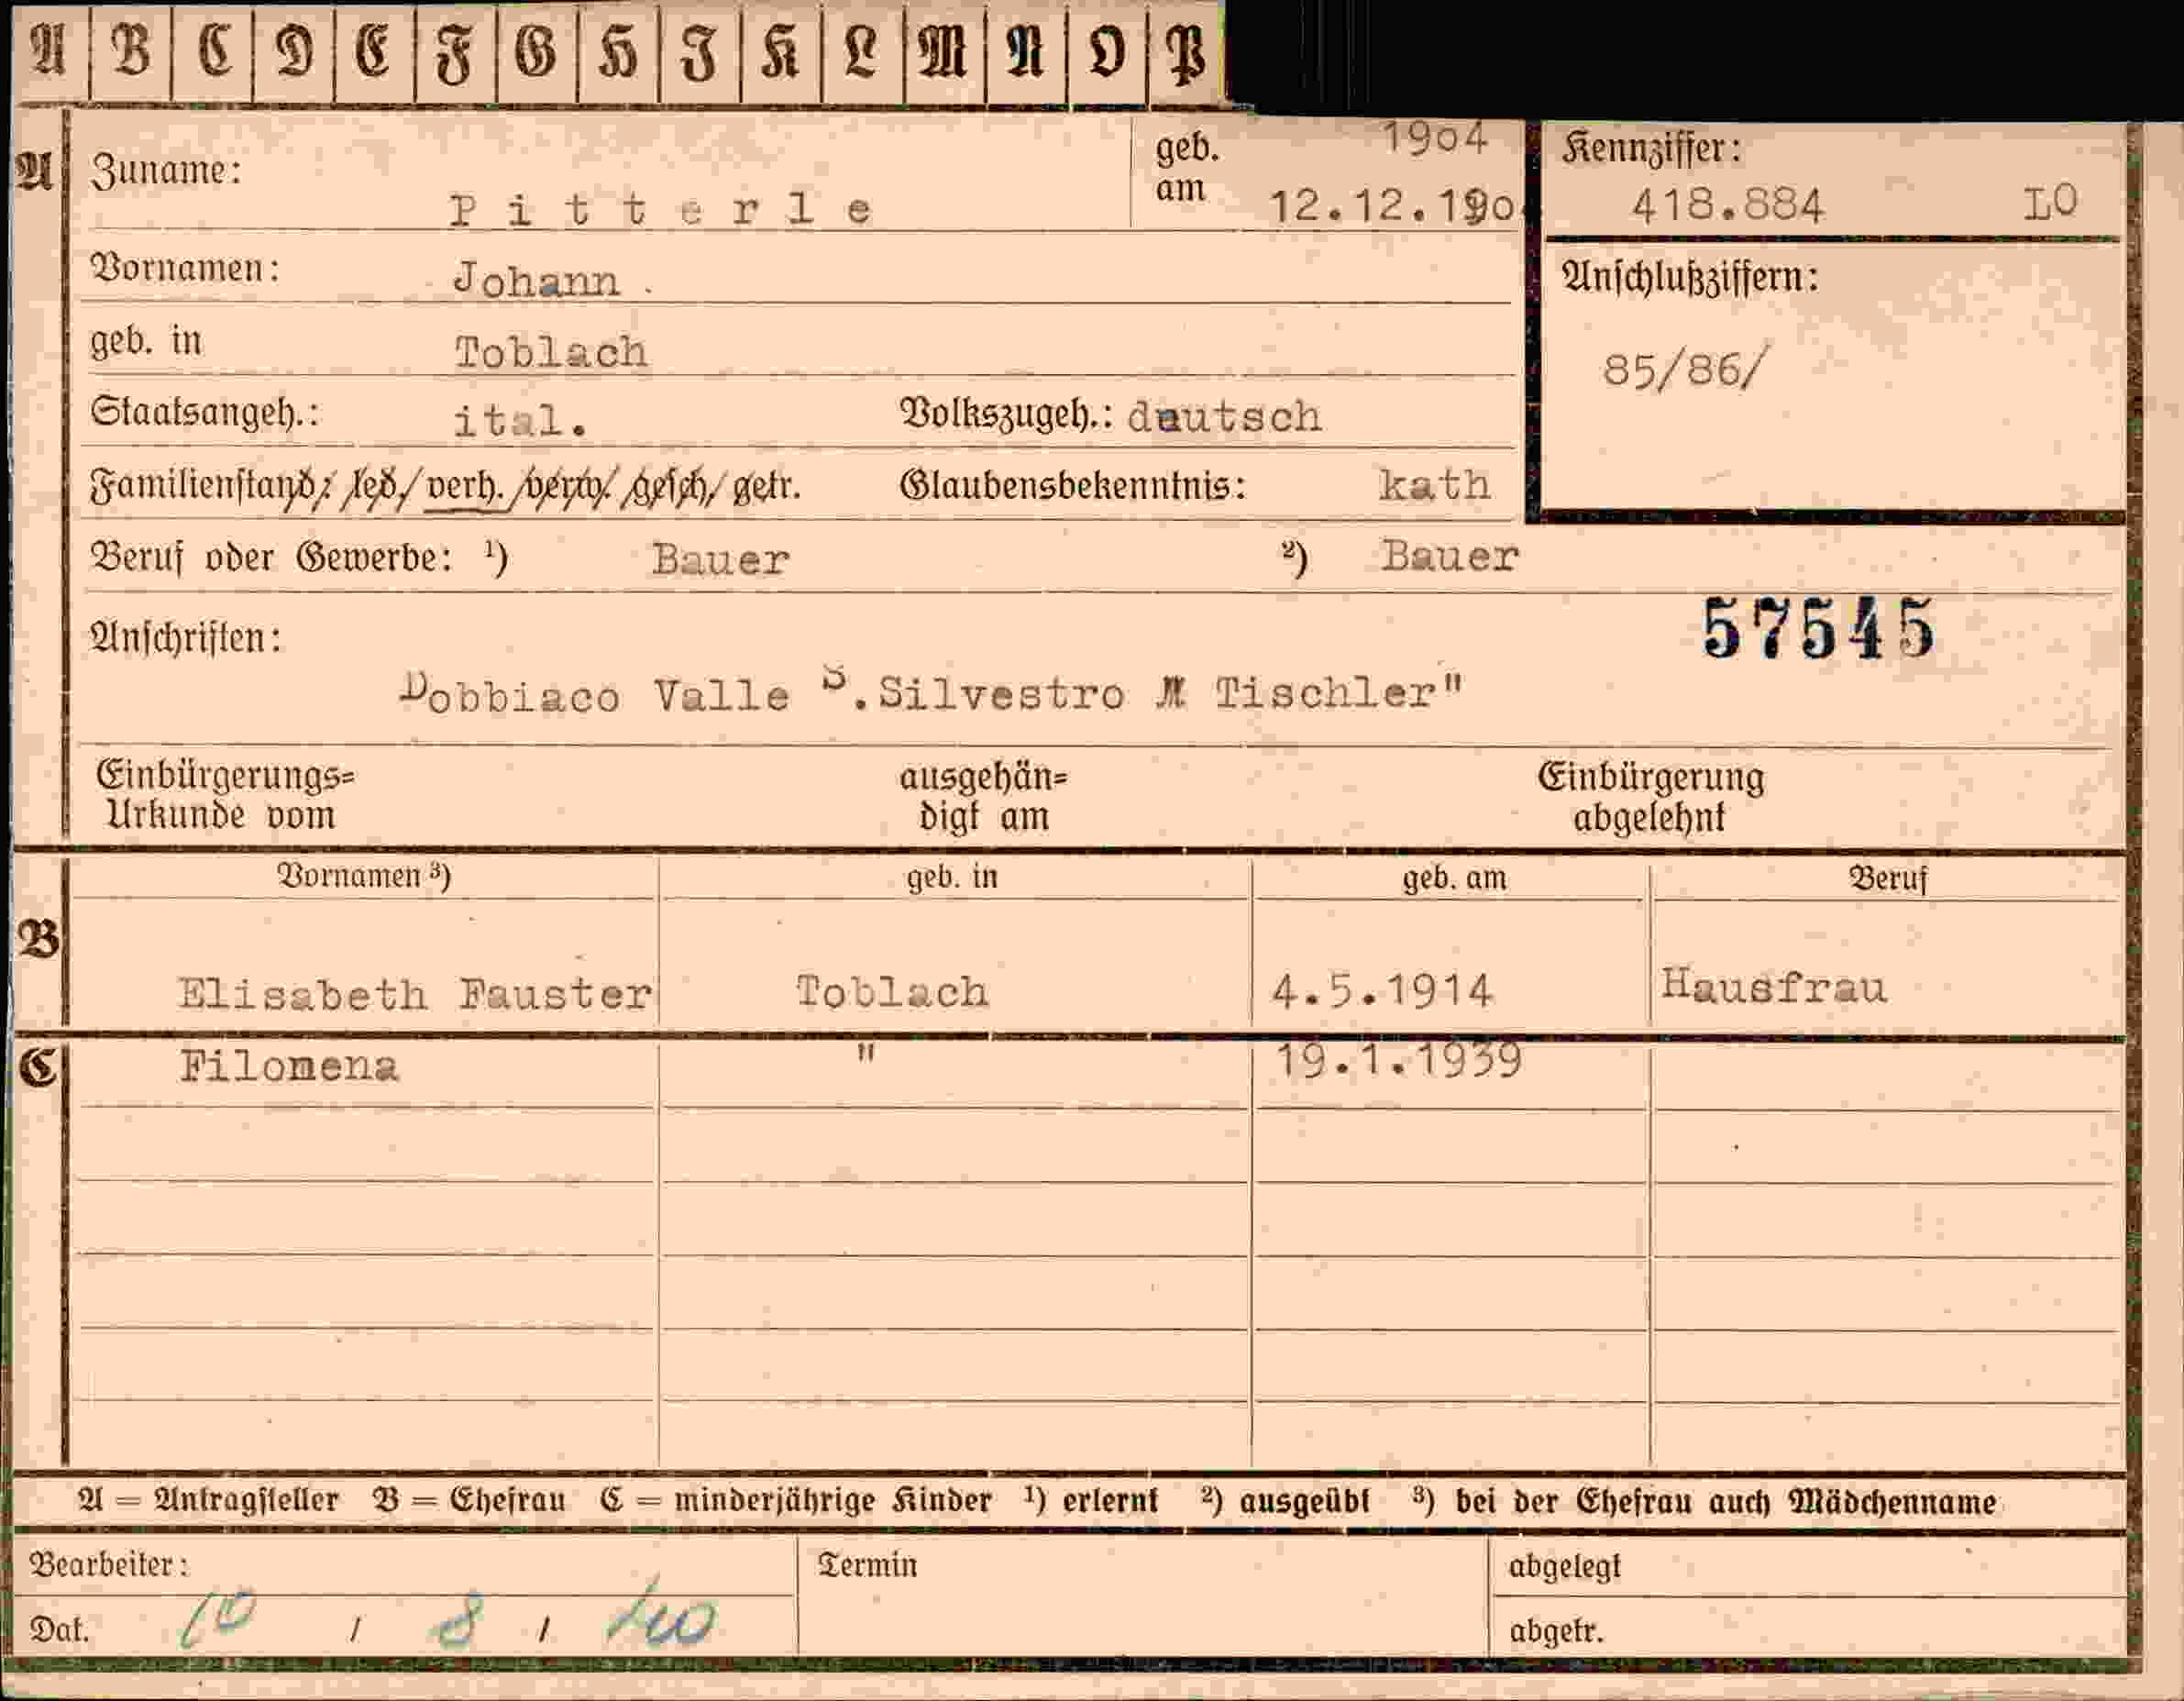 A B C D E F G H I K L M N O P
A Zuname: Pitterle geb. am 1904 12.12.190
Kennziffer: 418.884 LO
Vornamen: Johann .
geb. in Toblach
Anschlußziffern: 85/86/
Staatsangeh.: ital. Volkszugeh.: deutsch
Familienstand: led. verh. verw. gesch. getr. Glaubensbekenntnis: kath
Beruf oder Gewerbe: ¹) Bauer ²) Bauer
Anschriften: 57545
Dobbiaco Valle S.Silvestro " Tischler"
Einbürgerungs= ausgehän= Einbürgerung
Urkunde vom digt am abgelehnt
Vornamen ³) geb. in geb. am Beruf
B Elisabeth Fauster Toblach 4.5.1914 Hausfrau
C Filomena " 19.1.1939
A = Antragsteller B = Ehefrau C = minderjährige Kinder ¹) erlernt ²) ausgeübt ³) bei der Ehefrau auch Mädchenname
Bearbeiter: Termin abgelegt
Dat. 10 / 8 / 40 abgetr.